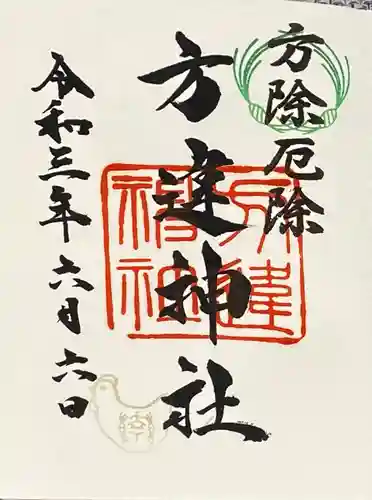 方除厄除
方違神社
令和三年六月六日
方違
神社
幸